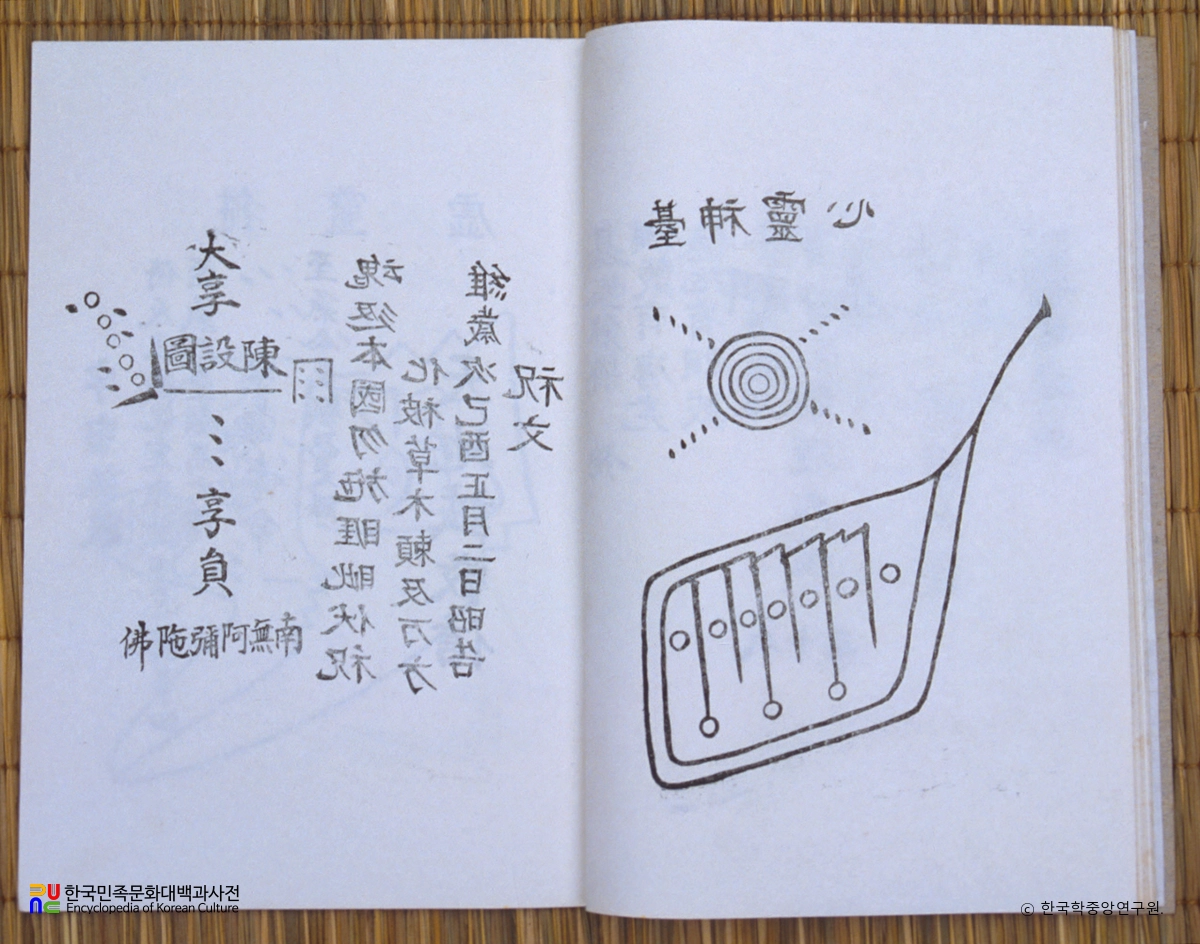 心靈神臺
祝文
維歲次己酉正月二日昭告
化被草木賴及万方
魂返本國勿施睚眦伏祝
大享
陳設圖
享員
南無阿彌陁佛
한국민족문화대백과사전
Encyclopedia of Korean Culture
© 한국학중앙연구원